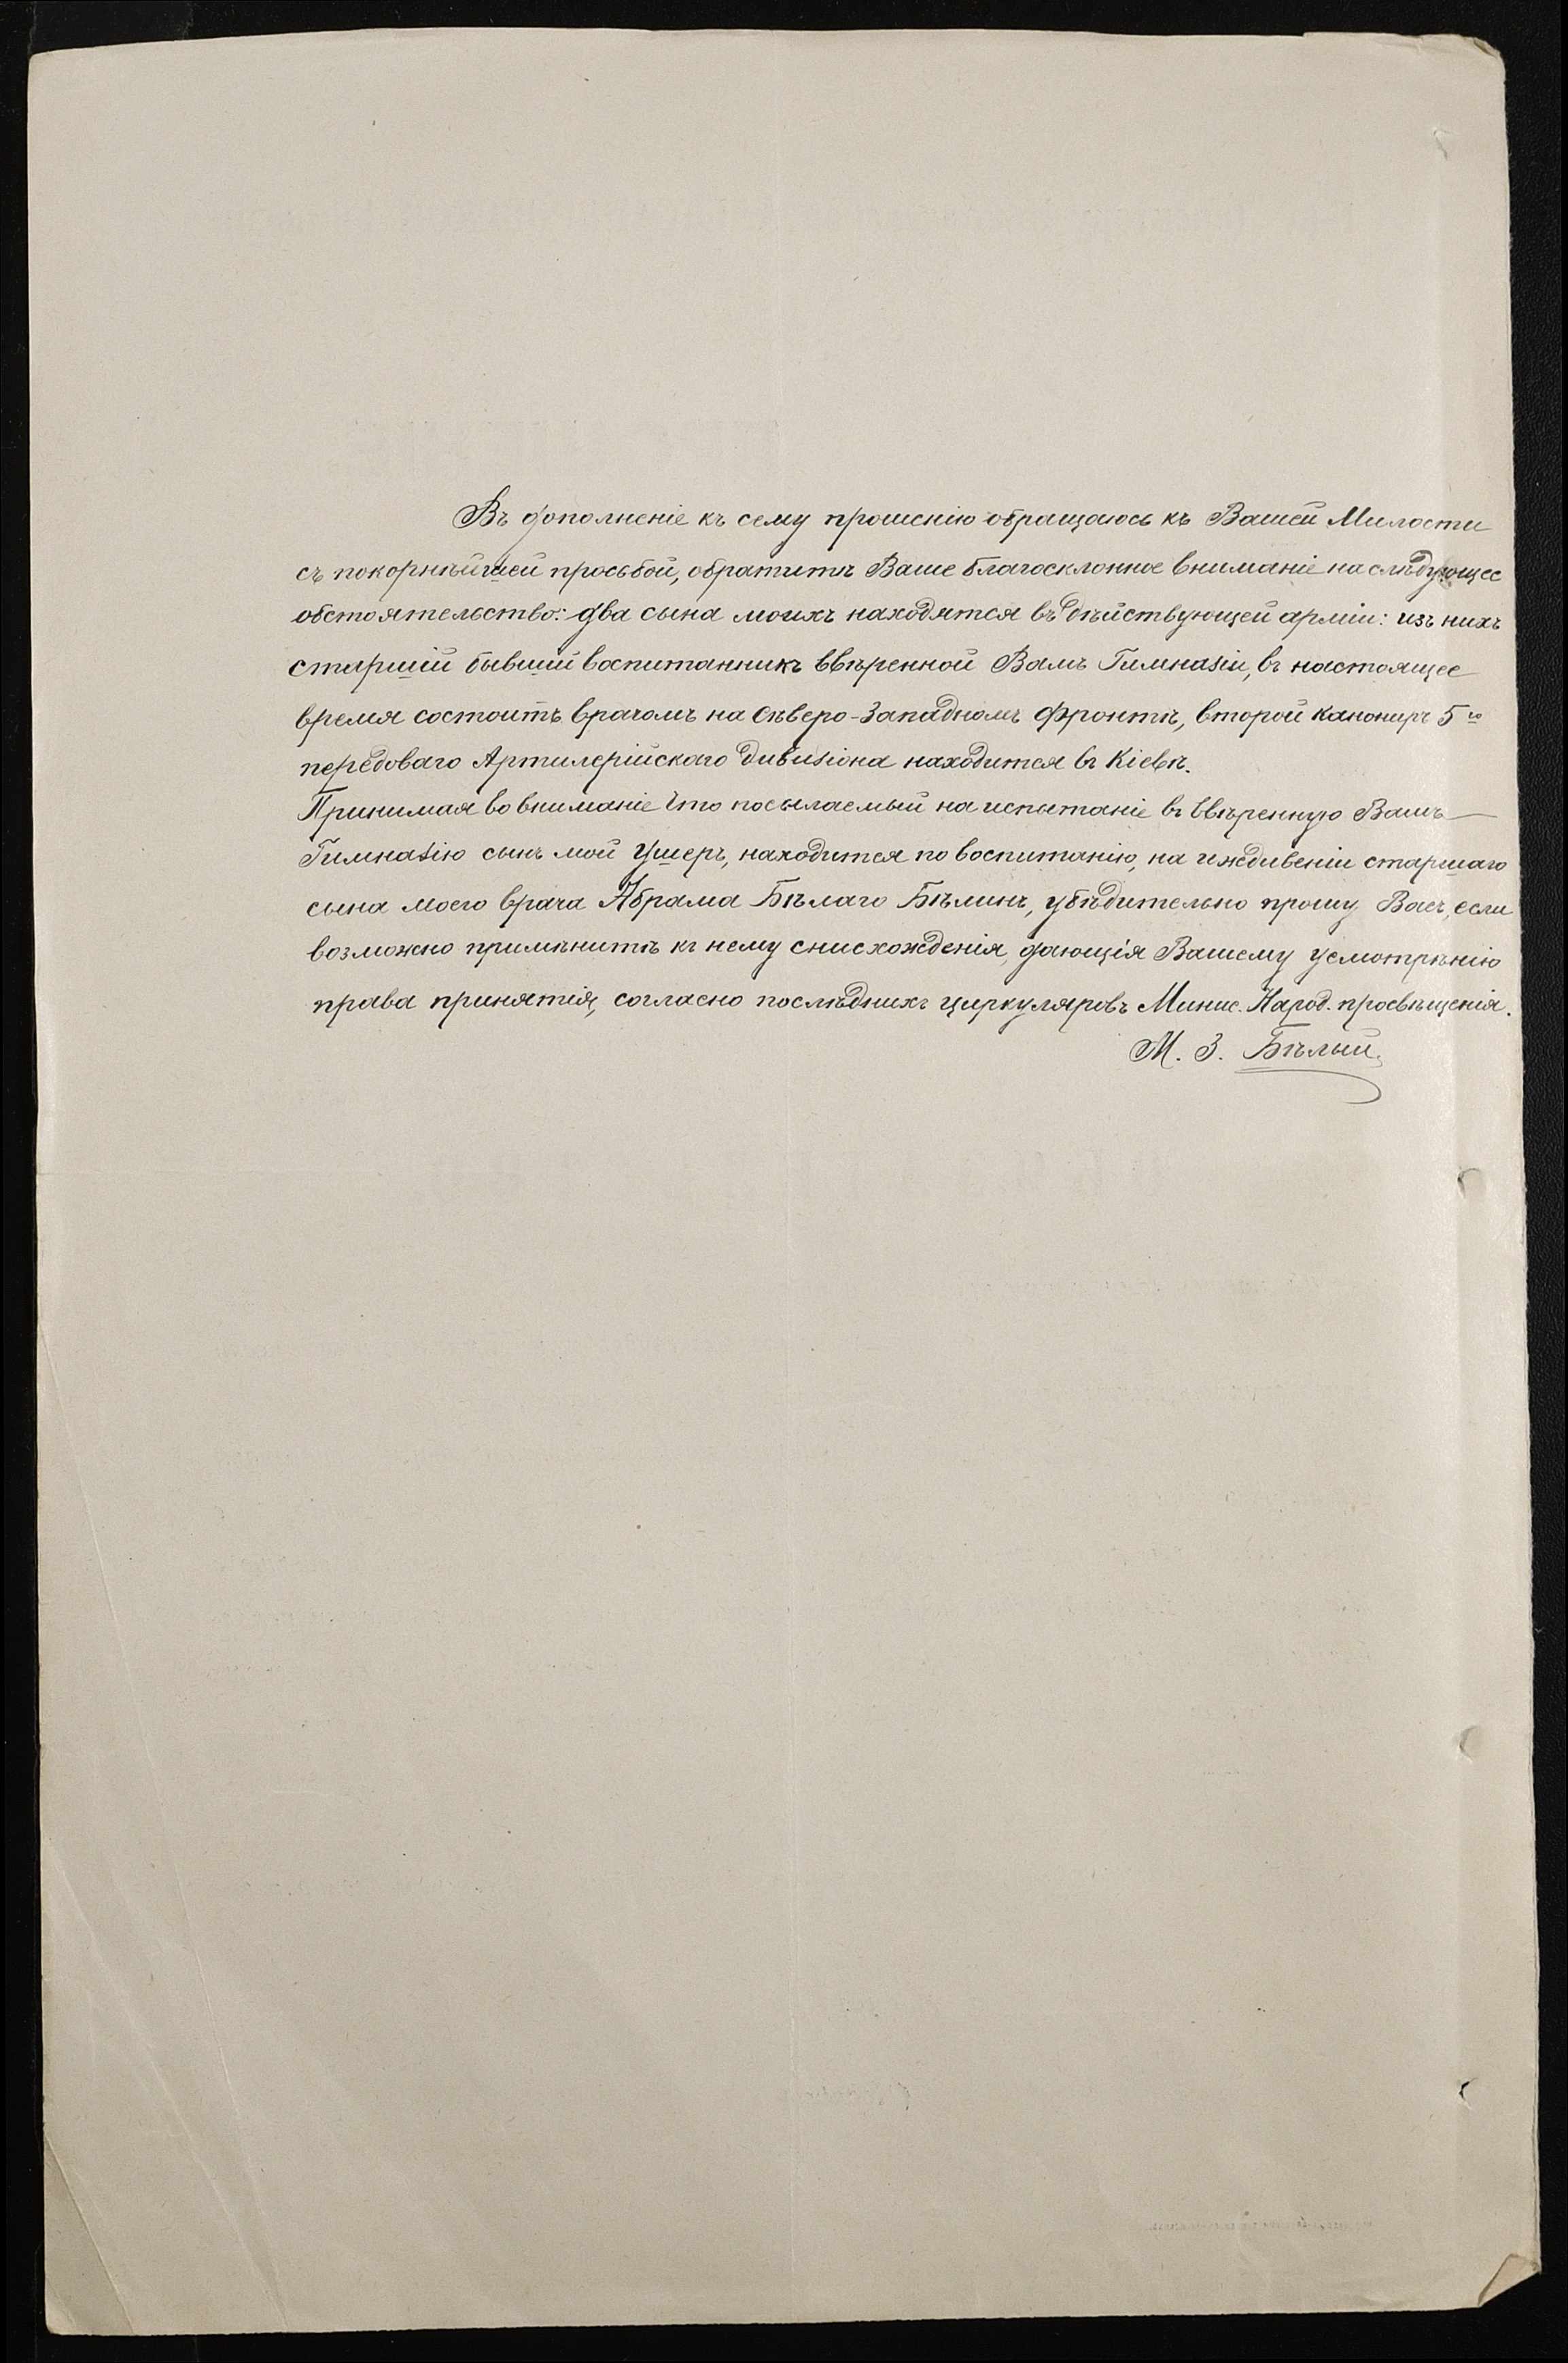 Въ дополненіе къ сему прошенію обращаюсь къ Вашей Милости
съ покорнѣйшей просьбой, обратить Ваше благосклонное вниманіе на слѣдующее
обстоятельство: два сына моихъ находятся въ дѣйствующей арміи: изъ нихъ
старшій бывшій воспитанникъ ввѣренной Вамъ Гимназіи, въ настоящее
время состоитъ врачомъ на Сѣверо-Западномъ Фронтѣ, второй канониръ 5го
передоваго Артилерійскаго дивизіона находится въ Кіевѣ.
Принимая во вниманіе что посылаемый на испытаніе въ ввѣренную Вамъ
Гимназію сынъ мой Ушеръ, находится по воспитанію, на иждивеніи старшаго
сына моего врача Абрама Бѣлаго Бѣлинъ, убѣдительно прошу Васъ, если
возможно примѣнить къ нему снисхожденія, дающія Вашему усмотрѣнію
права принятія, согласно послѣднихъ циркуляровъ Минис. Народ. просвѣщенія.
М. З. Бѣлый.